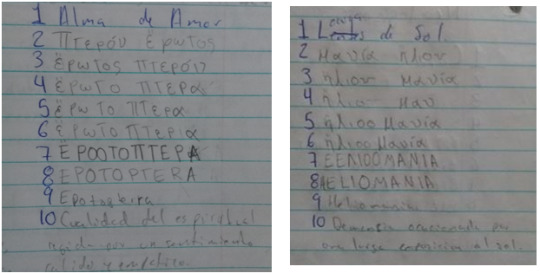 1 Alma de Amor
2 Πτερόν Έρωτος
3 έρωτος πτερόν
4 έρωτο πτερα
5 έρωτο πτερα
6 έρωτο πτερια
7 ËΡΟΟΤΟΠΤΕΡΑ
8 EPOTOPTERA
9
10 Cualidad del espiritual
regida por un sentimiento
calido y empático.
1 de Sol.
2 μανία ηλιον
3 ήλιον μανία
4 ήλιο μαν
5 ήλιοο μανία
6 ήλιοο μανία
7 EELIOOMANIA
8 HELIOMANIA
9 Heliomania
10 Demencia ocacionada por
una larga exposicion al sol.